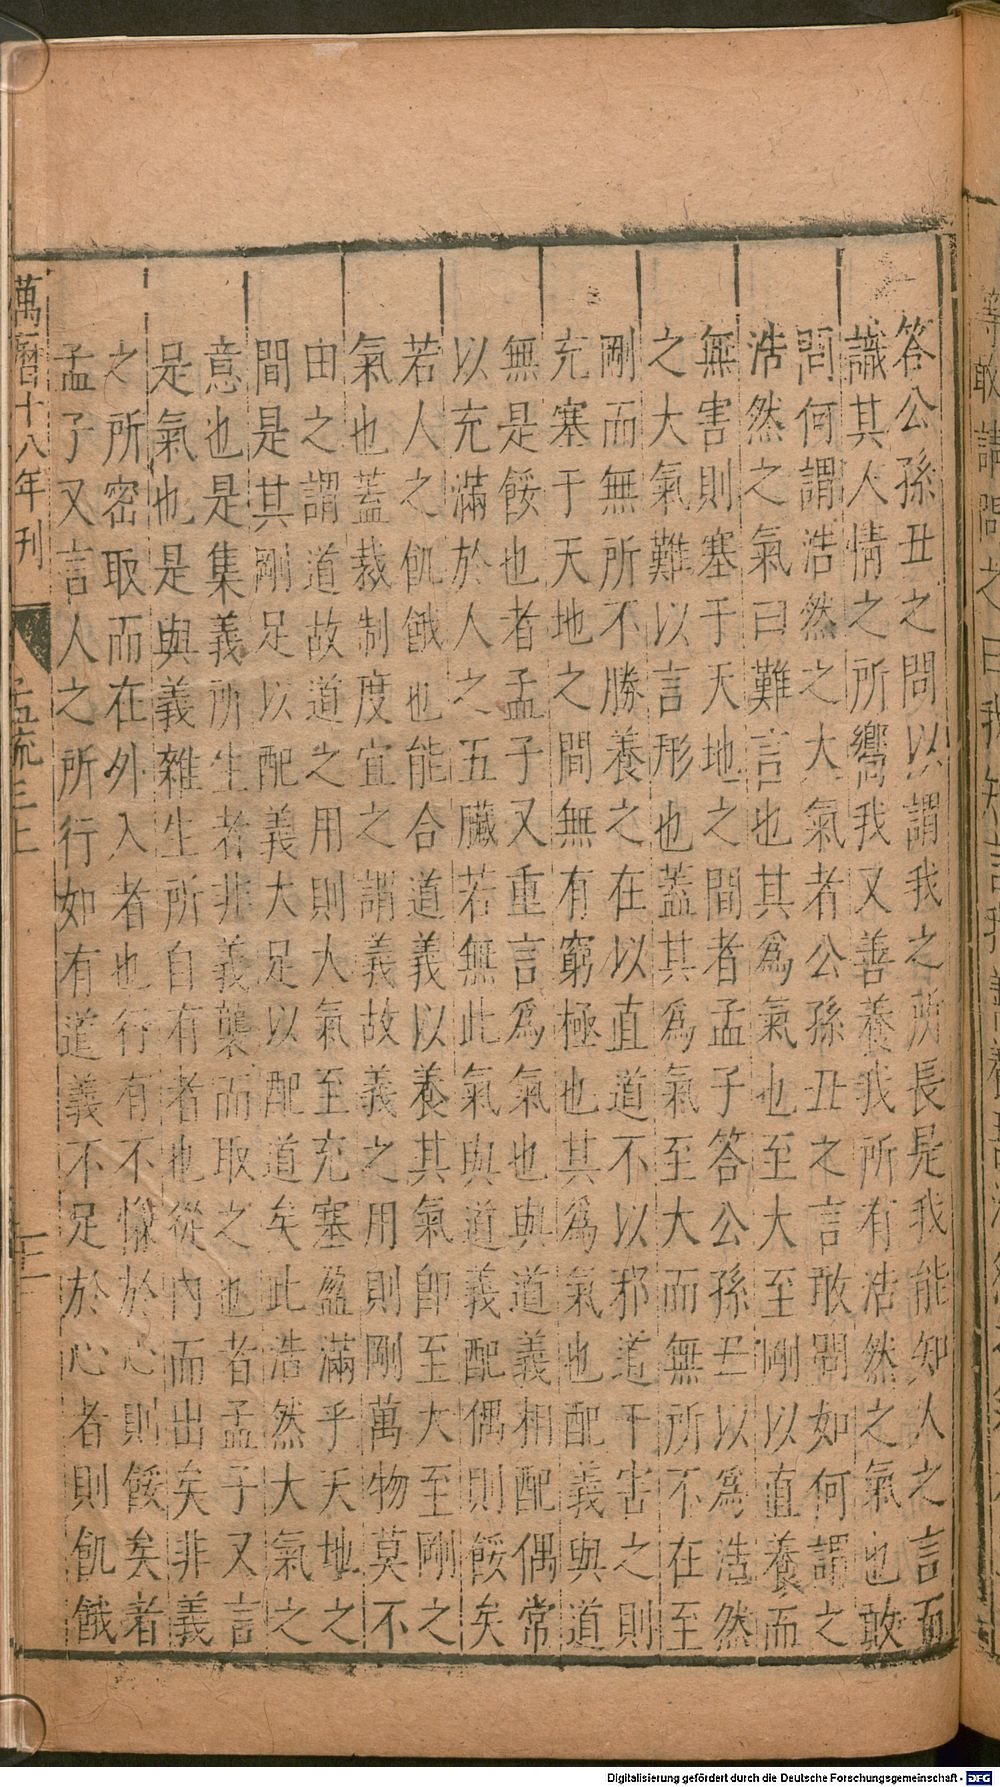 答公孫丑之問以謂我之所長是我能知人之言而
識其人情之所嚮我又善養我所有浩然之氣也敢
問何謂浩然之大氣者公孫丑之言敢問如何謂之
浩然之氣曰難言也其爲氣也至大至剛以直養而
無害則塞于天地之間者孟子答公孫丑以爲浩然
之大氣難以言形也蓋其爲氣至大而無所不在至
剛而無所不勝養之在以直道不以邪道干害之則
充塞于天地之間無有窮極也其爲氣也配義與道
無是餒也者孟子又重言爲氣也與道義相配偶常
以充滿於人之五臟若無此氣與道義配偶則餒矣
若人之飢餓也能合道義以養其氣即至大至剛之
氣也蓋裁制度宜之謂義故義之用則剛萬物莫不
由之謂道故道之用則大氣至充塞盈滿乎天地之
間是其剛足以配義大足以配道矣此浩然大氣之
意也是集義所生者非義襲而取之也者孟子又言
是氣也是與義雜生所自有者也從內而出矣非義
之所密取而在外入者也行有不慊於心則餒矣者
孟子又言人之所行如有道義不足於心者則飢餓
萬曆十八年刊
孟疏三上
Digitalisierung gefördert durch die Deutsche Forschungsgemeinschaft - DFG